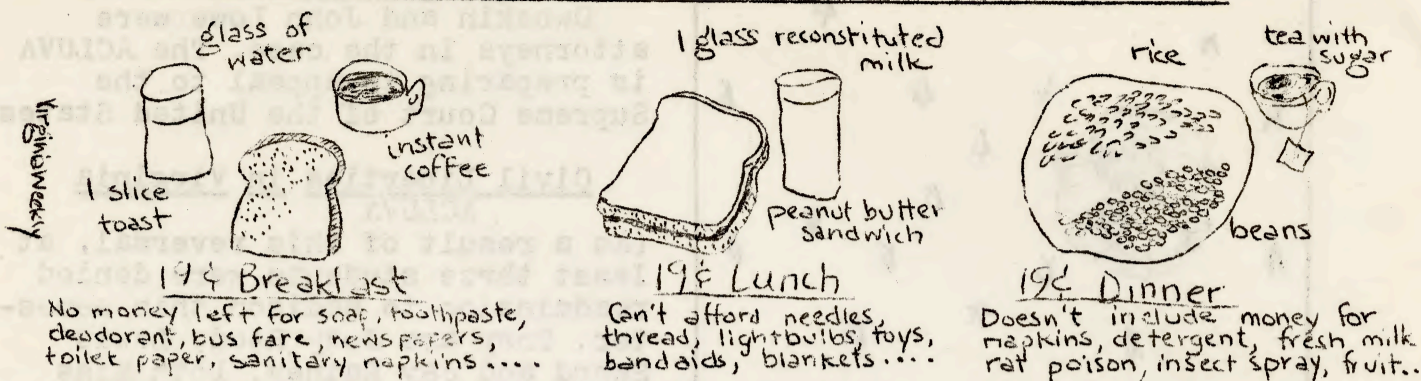 glass of
water
instant
coffee
1 slice
toast
Virginia Weekly
19¢ Breakfast
No money left for soap, toothpaste,
deodorant, bus fare, newspapers,
toilet paper, sanitary napkins....
1 glass reconstituted
milk
peanut butter
sandwich
19¢ Lunch
Can't afford needles,
thread, lightbulbs, toys,
bandaids, blankets....
rice
tea with
sugar
beans
19¢ Dinner
Doesn't include money for
napkins, detergent, fresh milk
rat poison, insect spray, fruit..